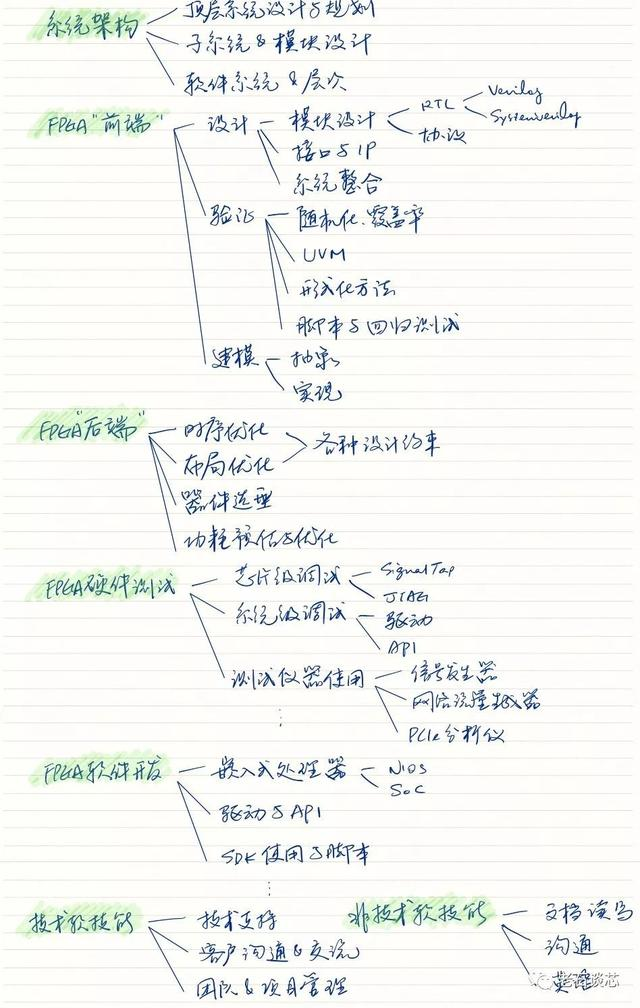 顶层系统设计与规划
系统架构
子系统 & 模块设计
软件系统 & 层次
FPGA“前端” 设计 模块设计 RTL Verilog
SystemVerilog
协议
接口与IP
系统整合
验证 随机化、覆盖率
UVM
形式化方法
脚本与回归测试
建模 抽象
实现
FPGA“后端” 时序优化 各种设计约束
布局优化
器件选型
功耗预估与优化
FPGA硬件测试 芯片级调试 SignalTap
JTAG
系统级调试 驱动
API
测试仪器使用 信号发生器
网络流量生成器
PCIe分析仪
⋮
FPGA软件开发 嵌入式处理器 NIOS
SoC
驱动与API
SDK使用与脚本
⋮
技术软技能 技术支持
客户沟通 & 交流
团队 & 项目管理
非技术软技能 文档读写
沟通
老石谈芯